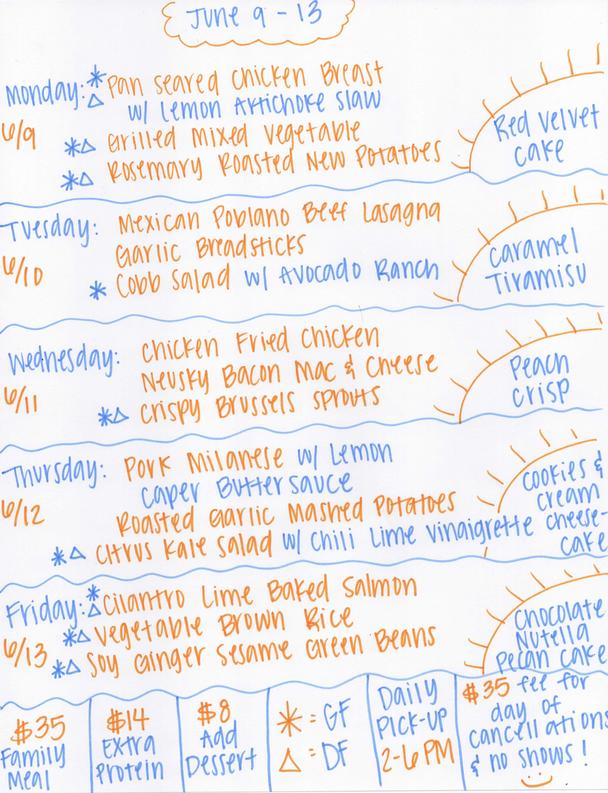 June 9 - 13
Monday: * Pan Seared Chicken Breast
△ w/ Lemon Artichoke Slaw
6/9 *△ Grilled Mixed Vegetable
*△ Rosemary Roasted New Potatoes
Red Velvet
Cake
Tuesday: Mexican Poblano Beef Lasagna
6/10 Garlic Breadsticks
* Cobb Salad w/ Avocado Ranch
Caramel
Tiramisu
Wednesday: Chicken Fried Chicken
6/11 Neusky Bacon Mac & Cheese
*△ Crispy Brussels Sprouts
Peach
Crisp
Thursday: Pork Milanese w/ Lemon
Caper Butter Sauce
6/12 Roasted Garlic Mashed Potatoes
*△ Citrus Kale Salad w/ Chili Lime Vinaigrette
Cookies &
Cream
Cheese-
Cake
Friday: *△ Cilantro Lime Baked Salmon
*△ Vegetable Brown Rice
6/13 *△ Soy Ginger Sesame Green Beans
Chocolate
Nutella
Pecan Cake
$35
Family
Meal
$14
Extra
Protein
$8
Add
Dessert
* = GF
△ = DF
Daily
Pick-up
2-6 PM
$35 fee for
day of
cancellations
& no shows!